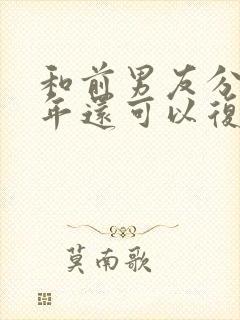 和前男友分
年還可以復
莫南歌